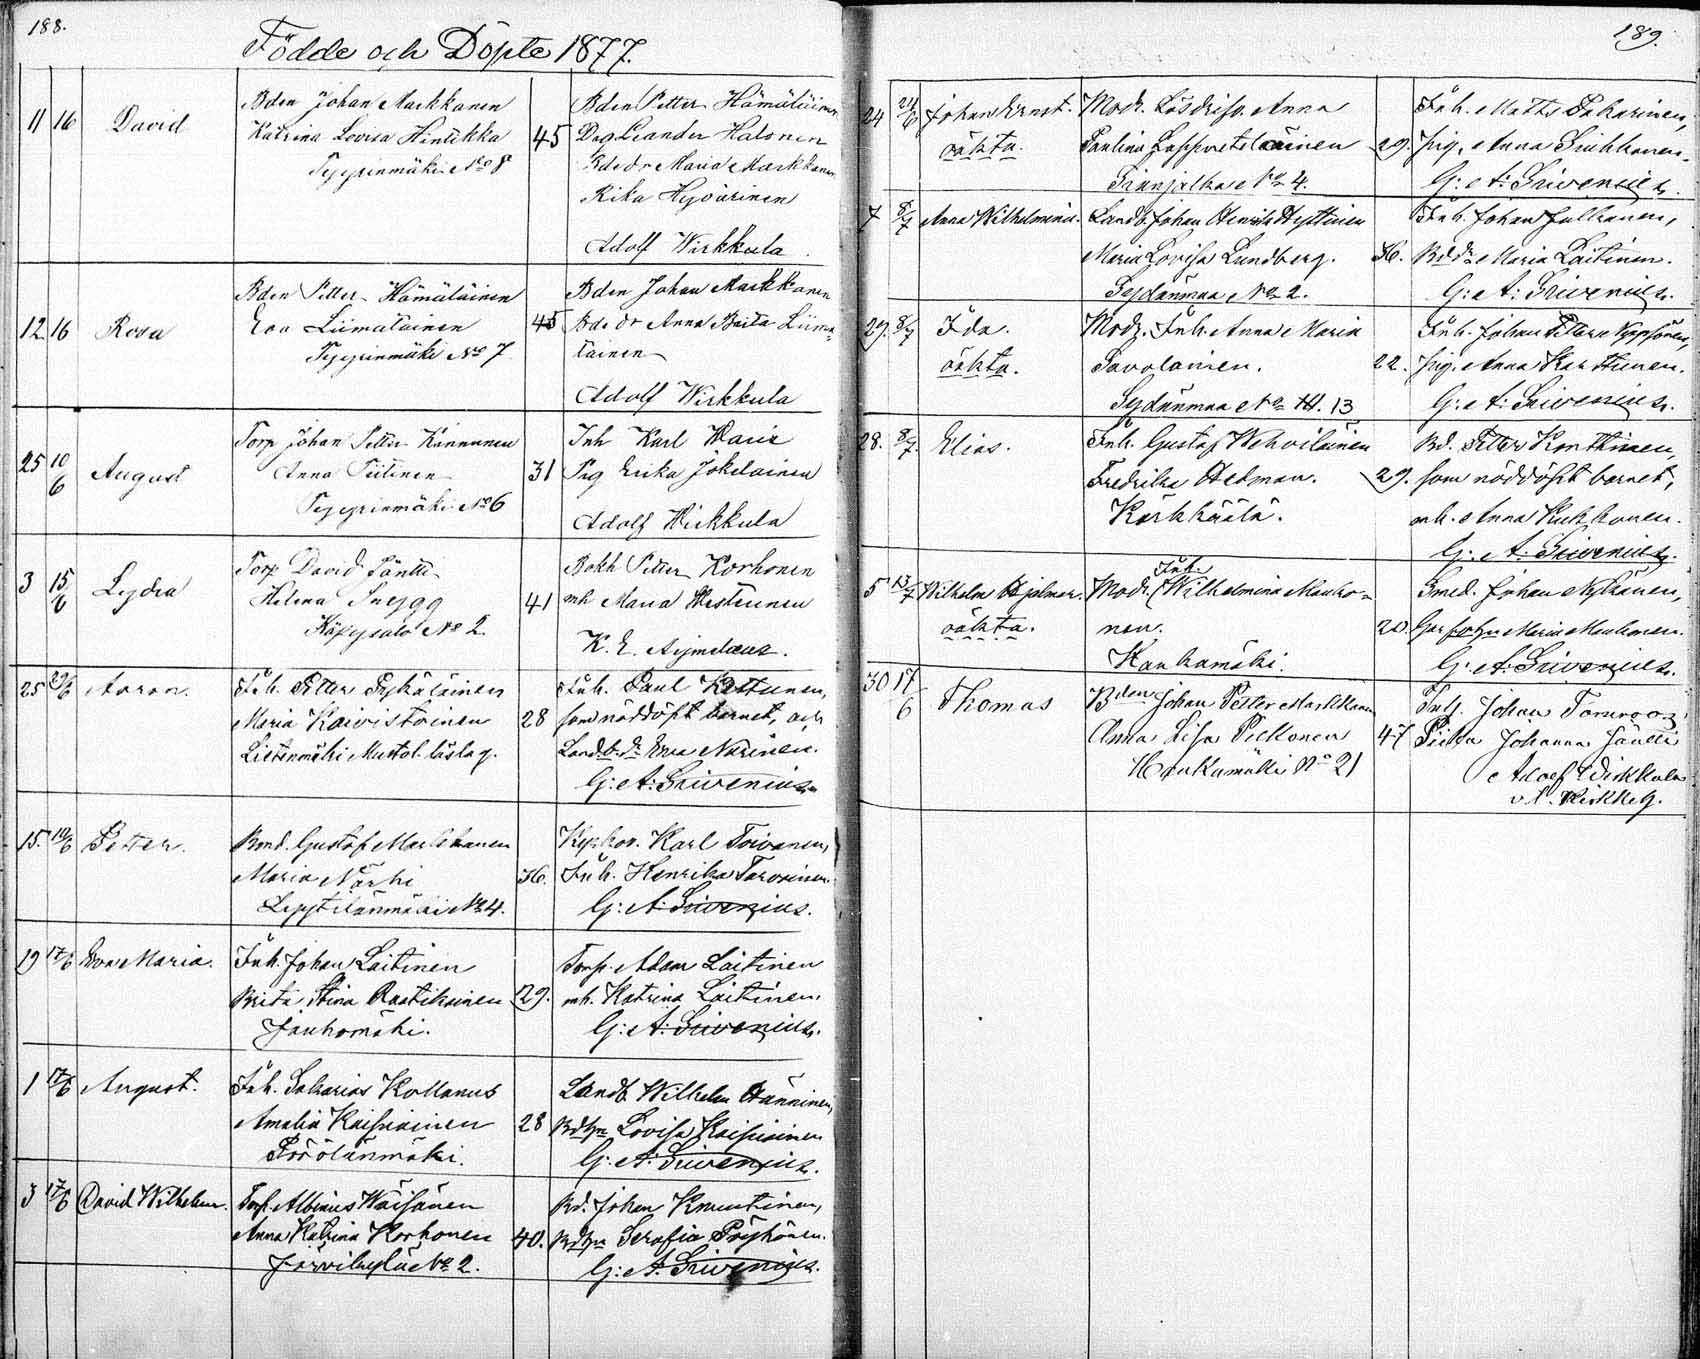 188.
Födde och Döpte 1877.
11 16 David Bden Johan Markkanen
Katrina Lovisa Hintikka
Tyyrinmäki No 8
45
Bden Petter Hämäläinen
Drg Leander Halonen
Bdedr Maria Markkanen
Rika Hyvärinen
Adolf Wirkkula
12 16 Rosa Bden Petter Hämäläinen
Eva Liimatainen
Tyyrinmäki No 7
45
Bden Johan Markkanen
Bdedr Anna Brita Liima-
tainen
Adolf Wirkkula
25 10/6 August Torp Johan Petter Kannunen
Anna Piitinen
Tyyrinmäki No 6
31
Inh Karl
Pig Erika Jokelainen
Adolf Wirkkula
3 15/6 Lydia Torp David Jäntti
Helena Snygg
Käpysalo No 2.
41
Bokh Petter Korhonen
mh Maria
K. E. Aymelaeus.
25 29/6 Aaron. Inh. Petter Pykäläinen
Maria Koivistoinen
28
Inh. Paul Kettunen,
som nöddöpt barnet, och
Landb. dr Ewa Närinen.
G: A: Grivenius.
15. 10/6 Petter. Bond. Gustaf Markkanen
Maria Närhi
Lyytilänmäki No 4.
36.
Karl Toivanen,
Inh. Henrika Tarvainen.
G: A: Grivenius.
19 17/6 Eva Maria. Inh. Johan Laitinen
Brita Stina Raatikainen
Jauhomäki.
29.
Torp. Adam Laitinen
mh. Katrina Laitinen.
G: A: Grivenius.
1 17/6 August. Inh. Sakarias Kollanus
Amalia Kaipiainen
Pöyölänmäki.
28
Landb. Wilhelm Hänninen,
Lovisa Kaipiainen
G: A: Grivenius.
3 17/6 David Wilhelm. Torp. Albinus Wäisänen
Anna Katrina Korhonen
Järvikylä No 2.
40.
Bd. Johan Knuutinen,
Serafia Pöyhönen.
G: A: Grivenius.
189.
24 24/6 Johan Ernst.
oäkta.
Modr. Lösdrifv. Anna
Paulina Lappvetelainen
No 4.
29.
Inh. Matts Pakarinen,
Pig. Anna Siikkonen.
G: A: Grivenius.
7 8/7 Anna Wilhelmina. Landb. Johan Henrik Hyttinen
Maria Lovisa Lundberg.
Sydänmaa No 2.
36.
Inh. Johan Julkunen,
Bddr Maria Laitinen.
G: A: Grivenius.
29. 8/7 Ida.
oäkta.
Modr. Inh. Anna Maria
Savolainen.
Sydänmaa No 13
22.
Inh. Johan Petter
Pig. Anna Karttunen.
G: A: Grivenius.
28. 8/7. Elias. Inh. Gustaf Wehviläinen
Fredrika Hedman.
Kärkkäälä.
29.
Bd. Petter Kontinen,
som nöddöpt barnet,
mh. Anna Kukkonen.
G: A: Grivenius.
5 13/7 Wilhelm Hjalmar.
oäkta.
Modr. Inh. Wilhelmina Manko-
nen.
Haukamäki.
20.
Smed. Johan Nykänen,
Maria Mankonen.
G: A: Grivenius.
30 17/6 Thomas Bden Johan Petter Markkanen
Anna Lisa Piekonen
Haukamäki No 21
47
Inh. Johan
Johanna Jäntti
Adolf Wirkkula